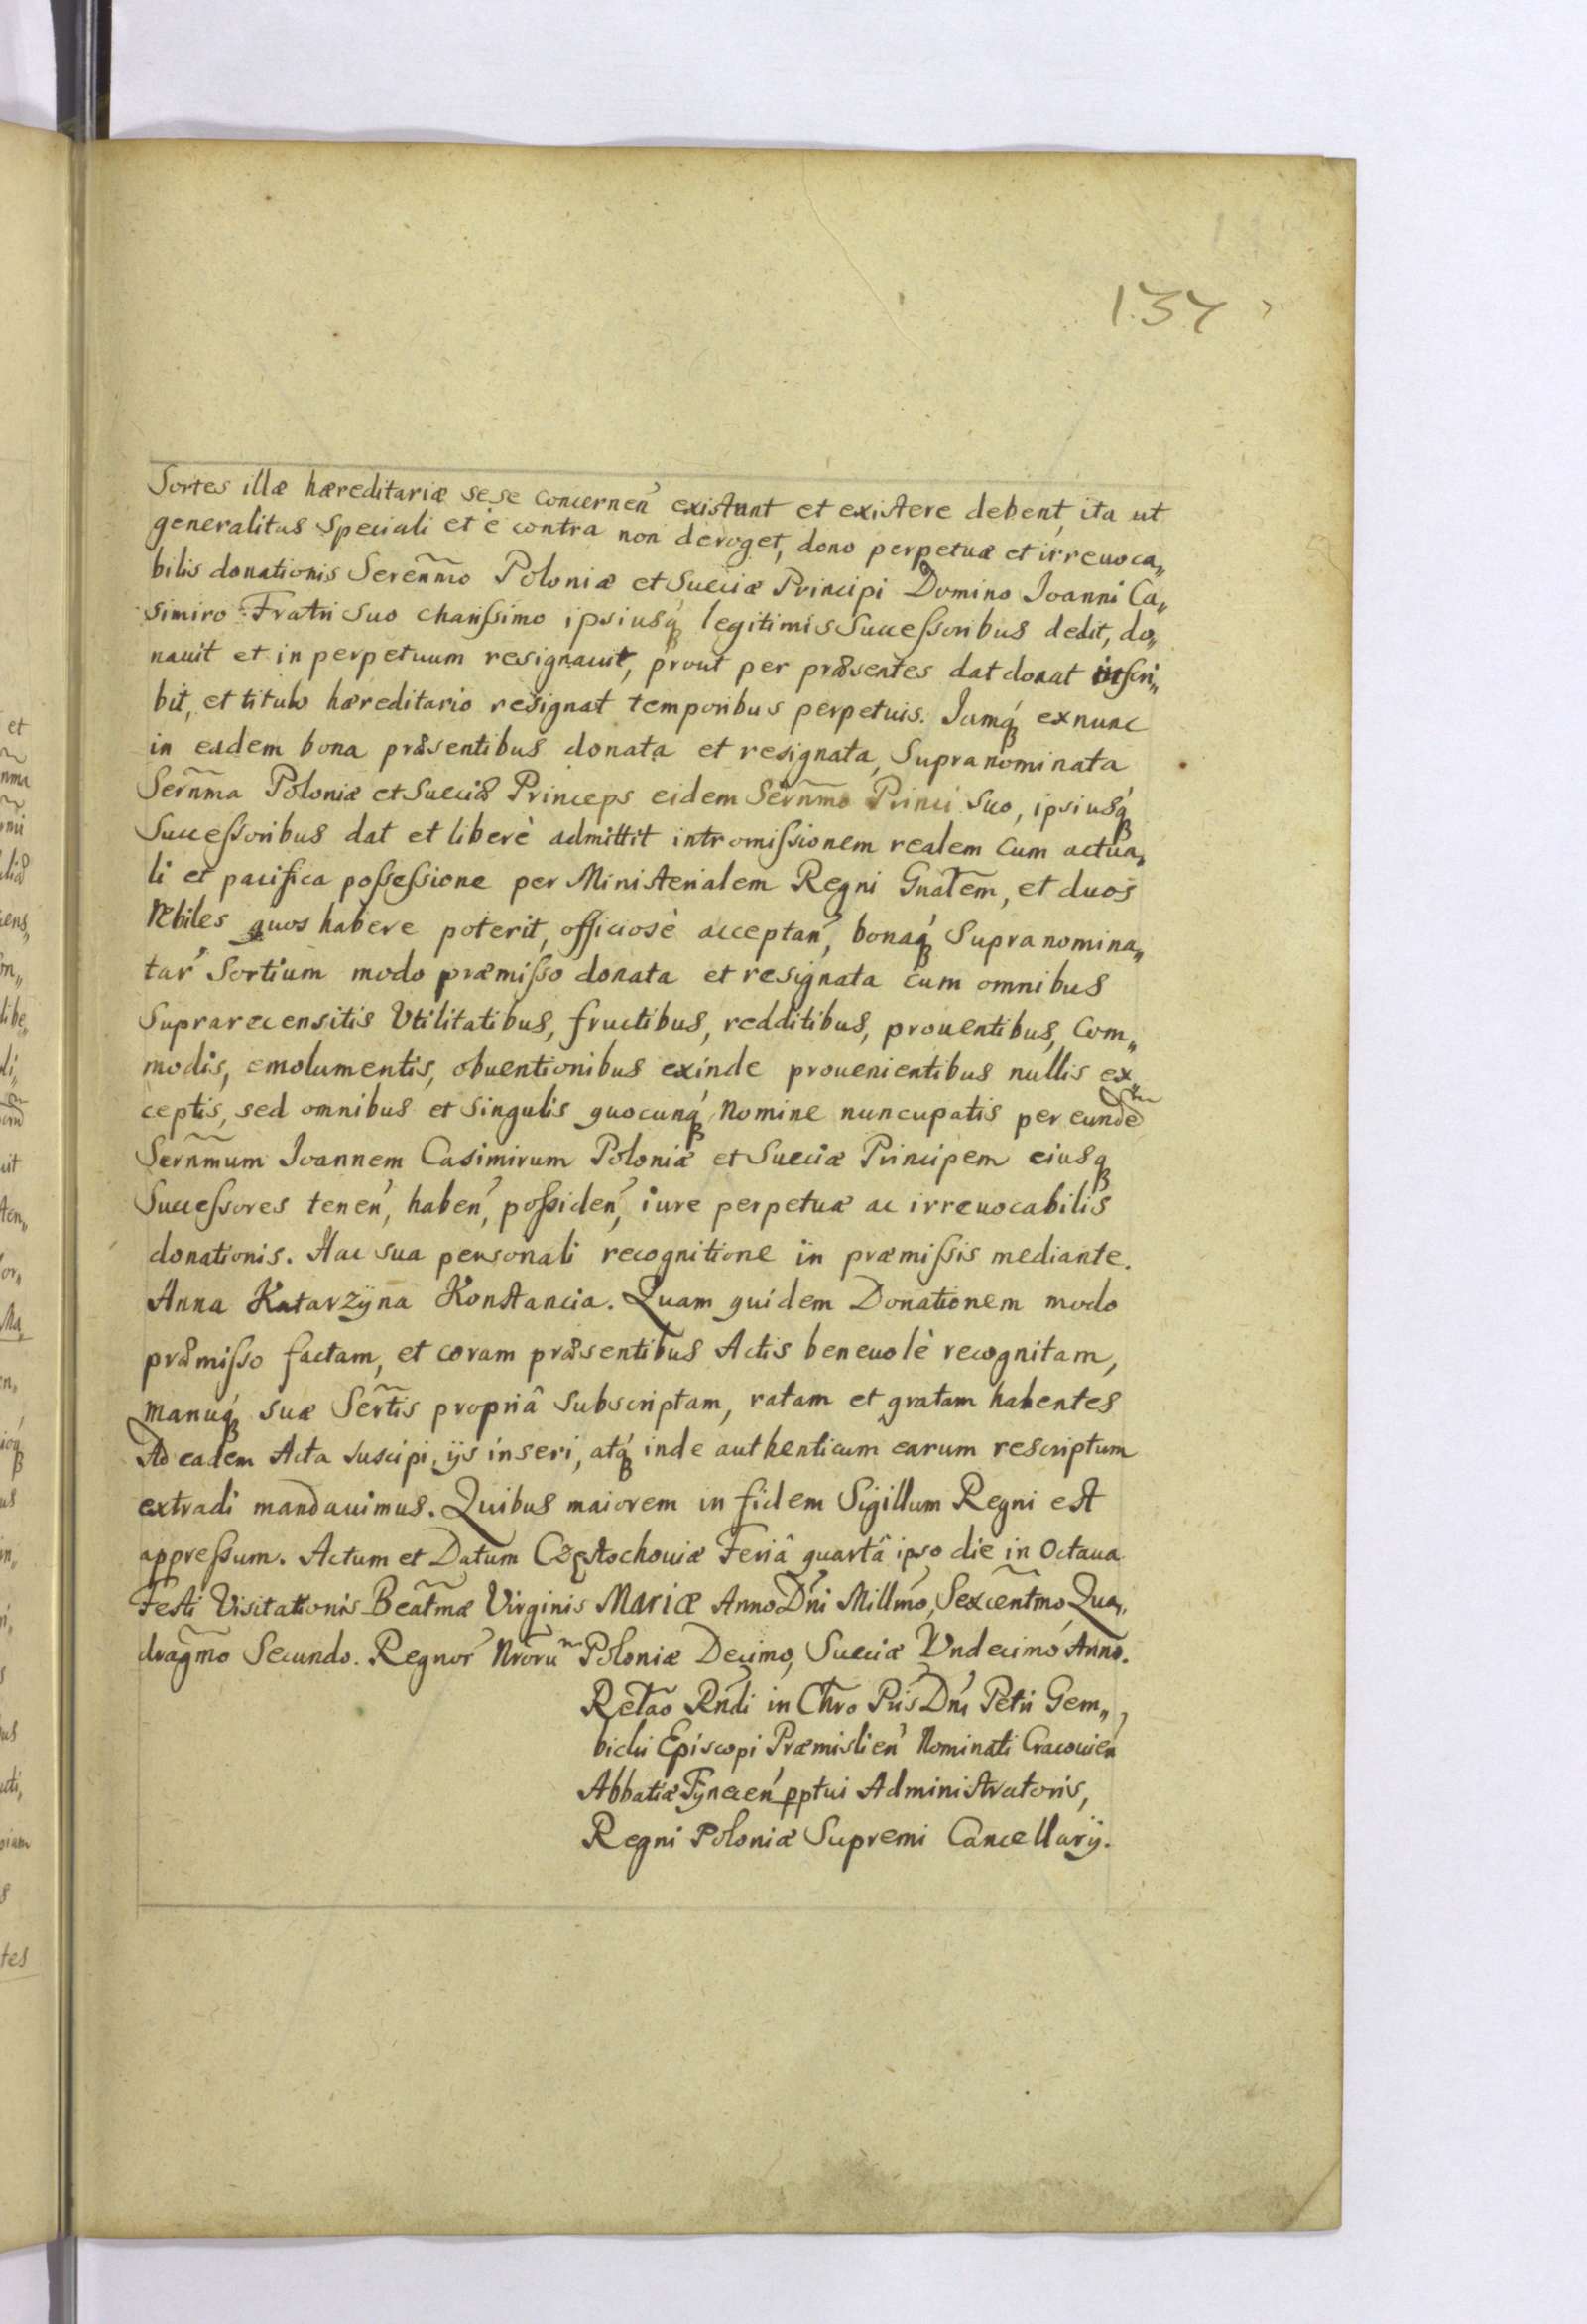 137
Sortes illæ hæreditariæ sese concernen̄ existunt et existere debent, ita ut
generalitas speciali et è contra non deroget, dono perpetuæ et irreuoca„
bilis donationis Seren̄mo Poloniæ et Sueciæ Principi Domino Ioanni Ca„
simiro Fratri suo charissimo ipsiusq́ legitimis Successoribus dedit, do„
nauit et in perpetuum resignauit, prout per præsentes dat donat inscri„
bit, et titulo hæreditario resignat temporibus perpetuis. Iamq́ ex nunc
in eadem bona præsentibus donata et resignata, Supranominata
Serñma Poloniæ et Sueciæ Princeps eidem Serñmo Princi suo, ipsiusq́
Successoribus dat et liberè admittit intromissionem realem cum actua„
li et pacifica possessione per Ministerialem Regni Gnãlem, et duos
Nobiles quos habere poterit, officiosè acceptan̄, bonaq́ Supranomina„
tar̄ Sortium modo præmisso donata et resignata cum omnibus
Suprarecensitis Vtilitatibus, fructibus, redditibus, prouentibus, Com„
modis, emolumentis, obuentionibus exinde prouenientibus nullis ex„
ceptis, sed omnibus et singulis quocunq́ Nomine nuncupatis per eundem
Serñmum Ioannem Casimirum Poloniæ et Sueciæ Principem eiusq
Successores tenen̄, haben̄, possiden̄, iure perpetuæ ac irreuocabilis
donationis. Hac sua personali recognitione in præmissis mediante.
Anna Katarzÿna Konstancia. Quam quidem Donationem modo
præmisso factam, et coram præsentibus Actis beneuolè recognitam,
manuq́ suæ Sertĩs propriâ subscriptam, ratam et gratam habentes
Ad eadem Acta suscipi, ijs inseri, atq́ inde authenticum earum rescriptum
extradi mandauimus. Quibus maiorem in fidem Sigillum Regni est
appressum. Actum et Datum Częstochouiæ Feriâ quartâ ipso die in Octaua
Festi Visitationis Beatm̃æ Virginis Mariæ Anno Dn̄i Millm̄o, Sexcentm̃o, Qua„
dragm̃o Secundo. Regnor̄ Nrõrum Poloniæ Decimo, Sueciæ Vndecimo Anno.
Relão Rn̄di in Chr̃o Pr̄is Dn̄i Petri Gem„
bicki Episcopi Præmislien̄ Nominati Cracouien̄
Abbatiæ Tynecen̄ pptui Administratoris,
Regni Poloniæ Supremi Cancellarij.